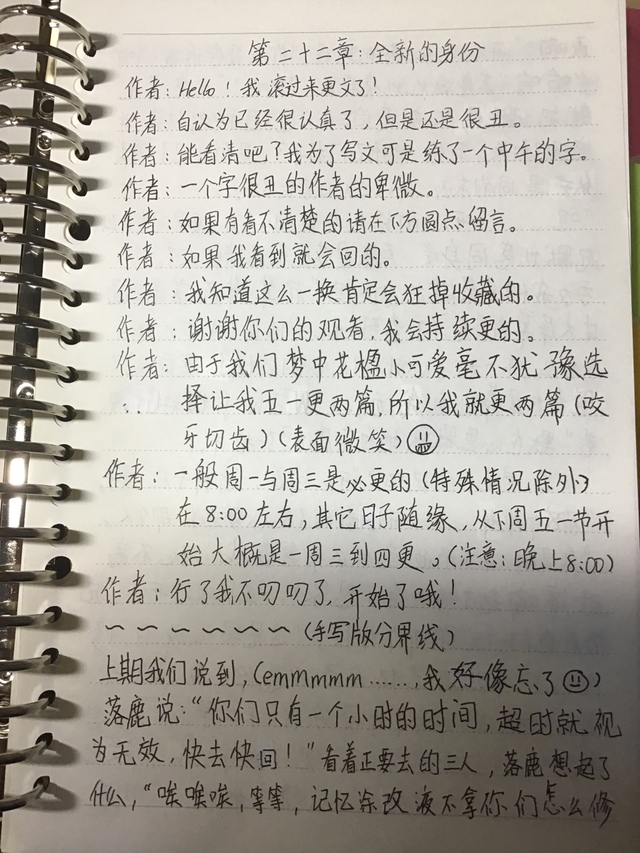 第二十二章:全新的身份
作者:Hello!我滚过来更文了!
作者:自认为已经很认真了,但是还是很丑。
作者:能看清吧?我为了写文可是练了一个中午的字。
作者:一个字很丑的作者的卑微。
作者:如果有看不清楚的请在下方圆点留言。
作者:如果我看到就会回的。
作者:我知道这么一换肯定会狂掉收藏的。
作者:谢谢你们的观看,我会持续更的。
作者:由于我们梦中花楹小可爱毫不犹豫选
择让我五一更两篇,所以我就更两篇(咬
牙切齿)(表面微笑)
作者:一般周一与周三是必更的(特殊情况除外)
在8:00左右,其它日子随缘,从下周五一节开
始大概是一周三到四更。(注意:晚上8:00)
作者:行了我不叨叨了,开始了哦!
~~~~~~~(手写版分界线)
上期我们说到,(emmmmm……,我好像忘了)
落鹿说:“你们只有一个小时的时间,超时就视
为无效,快去快回!”看着正要去的三人,落鹿想起了
什么,“唉唉唉,等等,记忆涂改液不拿你们怎么修